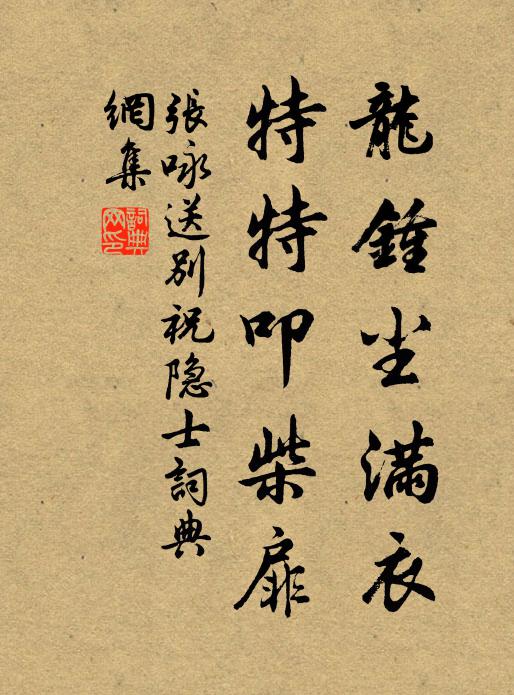 龍鍾尘滿衣
特特叩柴扉
張咏送別祝隐士詞典
網集
詞典網印